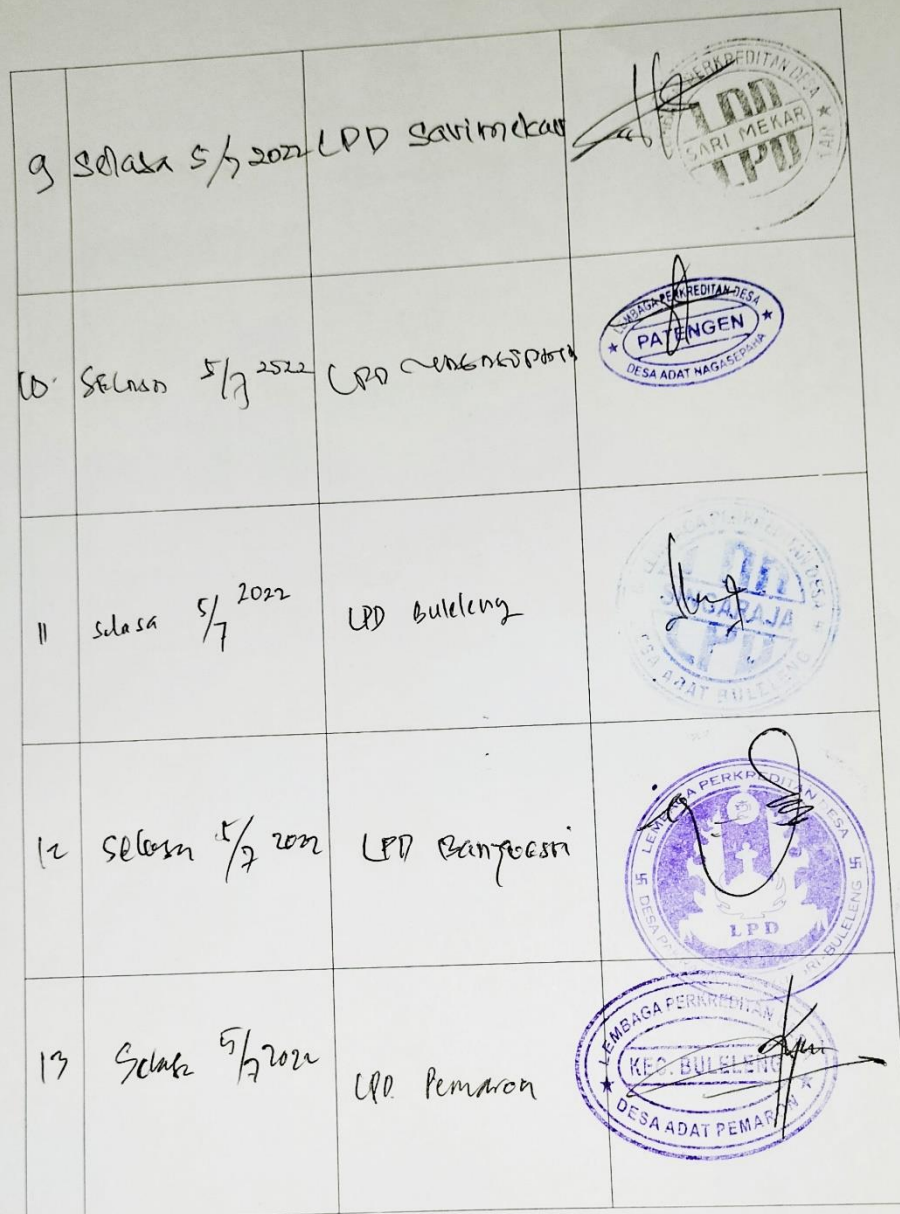 9 Selasa 5/7 2022 LPD Sarimekar
LEMBAGA PERKREDITAN DESA
LPD
SARI MEKAR
LPD
10. SELASA 5/7 2022 LPD NAGASEPAHA
LEMBAGA PERKREDITAN DESA
PATENGEN
DESA ADAT NAGASEPAHA
11 Selasa 5/7 2022 LPD Buleleng
LEMBAGA PERKREDITAN DESA
LPD
SINGARAJA
LPD
DESA ADAT BULELENG
12 Selasa 5/7 2022 LPD Banyuasri
LEMBAGA PERKREDITAN DESA
LPD
DESA
BULELENG
13 Selasa 5/7 2022 LPD. Pemaron
LEMBAGA PERKREDITAN
KEC. BULELENG
DESA ADAT PEMARON